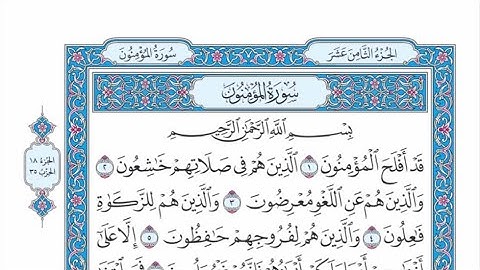 الجزء الثامن عشر
سورة المؤمنون
سُورَةُ المُؤْمِنُونَ
بِسْمِ اللَّهِ الرَّحْمَٰنِ الرَّحِيمِ
قَدْ أَفْلَحَ الْمُؤْمِنُونَ ١ الَّذِينَ هُمْ فِي صَلَاتِهِمْ خَاشِعُونَ ٢
وَالَّذِينَ هُمْ عَنِ اللَّغْوِ مُعْرِضُونَ ٣ وَالَّذِينَ هُمْ لِلزَّكَاةِ
فَاعِلُونَ ٤ وَالَّذِينَ هُمْ لِفُرُوجِهِمْ حَافِظُونَ ٥ إِلَّا عَلَىٰ
الجزء ١٨
الحزب ٣٥